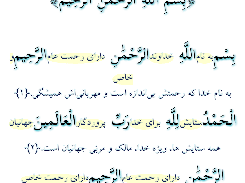 ﴿بِسْمِ اللَّهِ الرَّحْمَٰنِ الرَّحِيمِ﴾
بِسْمِ به نام اللَّهِ خداوند الرَّحْمَٰنِ دارای رحمت عام الرَّحِيمِ و
خاص
به نام خدا که رحمتش بی‌اندازه است و مهربانی‌اش همیشگی.-{۱}-
الْحَمْدُ ستایش لِلَّهِ برای خدا رَبِّ پروردگار الْعَالَمِينَ جهانیان
همه ستایش ها، ویژه خدا، مالک و مربّی جهانیان است.-{۲}-
الرَّحْمَٰنِ دارای رحمت عام الرَّحِيمِ دارای رحمت خاص